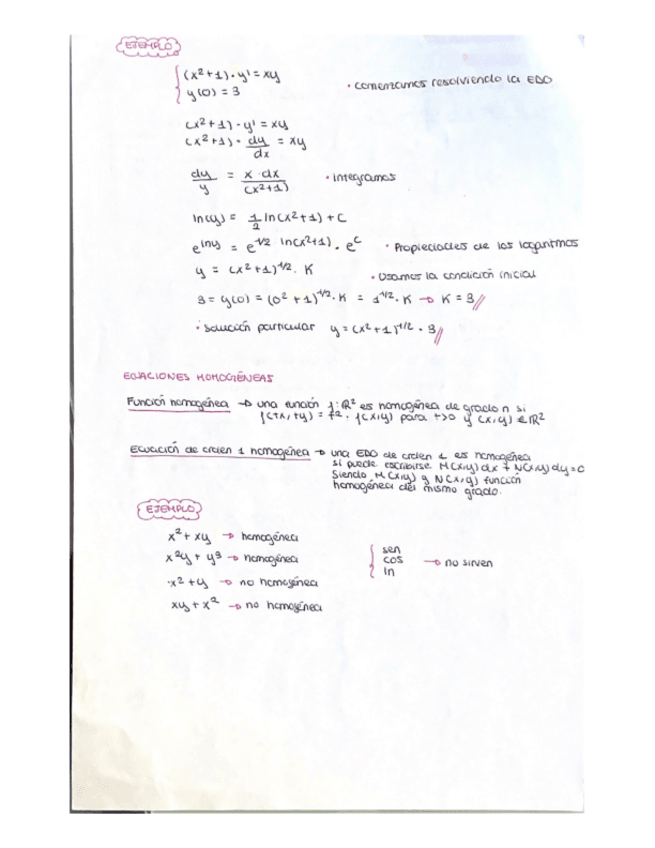 EJEMPLO
(x²+1)·y' = xy
y(0) = 3
· comenzamos resolviendo la EDO
(x²+1)·y' = xy
(x²+1)· dy/dx = xy
dy/y = x·dx/(x²+1) · integramos
ln(y) = 1/2 ln(x²+1) + C
e^lny = e^1/2 ln(x²+1) · e^C · Propiedades de los logaritmos
y = (x²+1)^1/2 · K · Usamos la condición inicial
3 = y(0) = (0²+1)^1/2 · K = 1^1/2 · K → K = 3//
· solución particular y = (x²+1)^1/2 · 3//
ECUACIONES HOMOGÉNEAS
Función homogénea → una función f: ℝ² es homogénea de grado n si
f(tx, ty) = t². f(x,y) para t>0 y (x,y) ∈ ℝ²
Ecuación de orden 1 homogénea → una EDO de orden 1 es homogénea
si puede escribirse M(x,y)dx + N(x,y)dy=0
Siendo M(x,y) y N(x,y) función
homogénea del mismo grado.
EJEMPLO
x² + xy → homogénea
x²y + y³ → homogénea
·x² + y → no homogénea
xy + x² → no homogénea
sen
cos → no sirven
ln